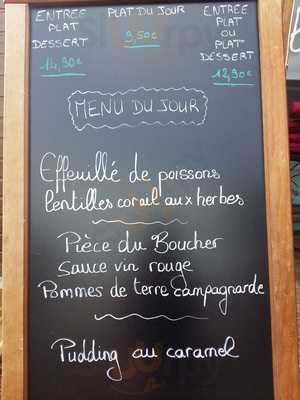 ENTREE
PLAT
DESSERT
14,90€
PLAT DU JOUR
9,50€
ENTREE
PLAT
OU
PLAT
DESSERT
12,90€
MENU DU JOUR
Effeuillé de poissons
Lentilles corail aux herbes
Pièce du Boucher
Sauce vin rouge
Pommes de terre campagnarde
Pudding au caramel